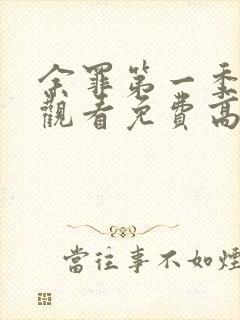 余罪第一季
觀看免費高
當往事不如煙